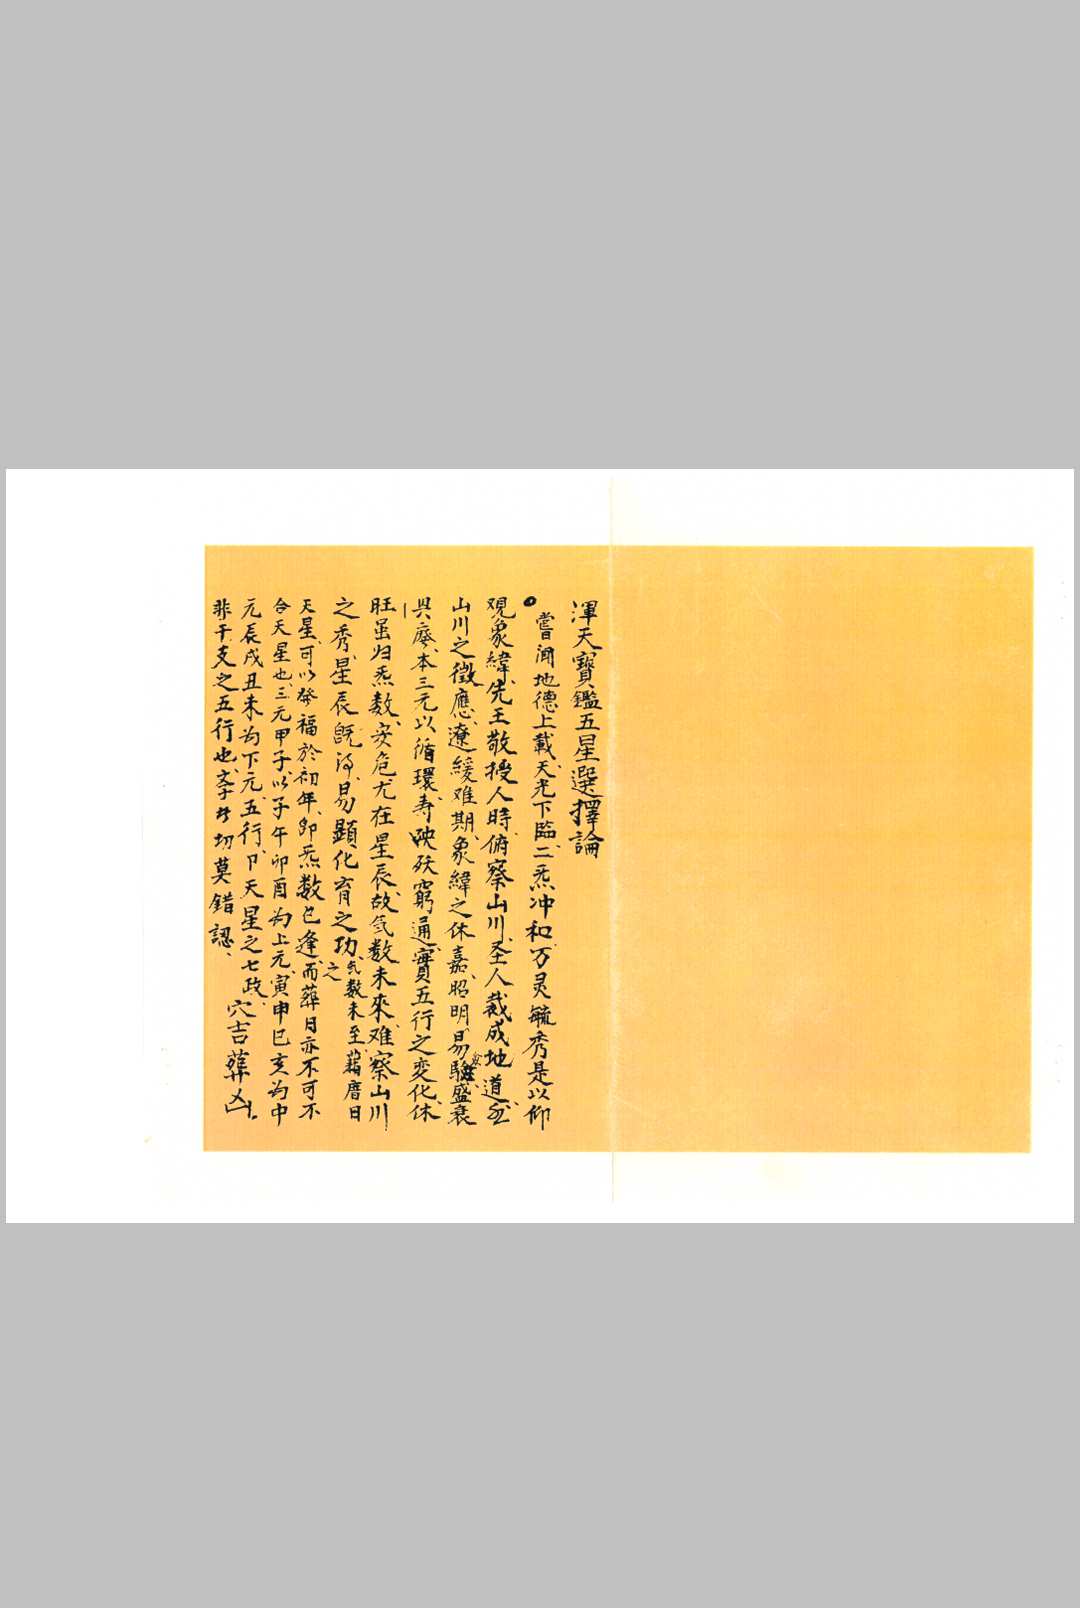 渾天寶鑑五星選擇論
嘗聞地德上載、天光下臨、二炁冲和、万灵毓秀、是以仰
观象緯、先王敬授人時、俯察山川、圣人裁成地道、
山川之徵應、遼緩难期、象緯之休嘉、昭明易驗、盛衰
兴廢、本三元以循環、寿殀窮通、實五行之变化、休
旺虽归炁数、安危尤在星辰、故氣数未來、难察山川
之秀、星辰既得、易顯化育之功、氣数未至、藉曆日之
天星、可以發福於初年、即炁数已逢、而葬日亦不可不
合天星也、三元甲子、以子午卯酉为上元、寅申巳亥为中
元、辰戌丑未为下元、五行、卩天星之七政、
非干支之五行也、切莫錯認、
穴吉葬凶